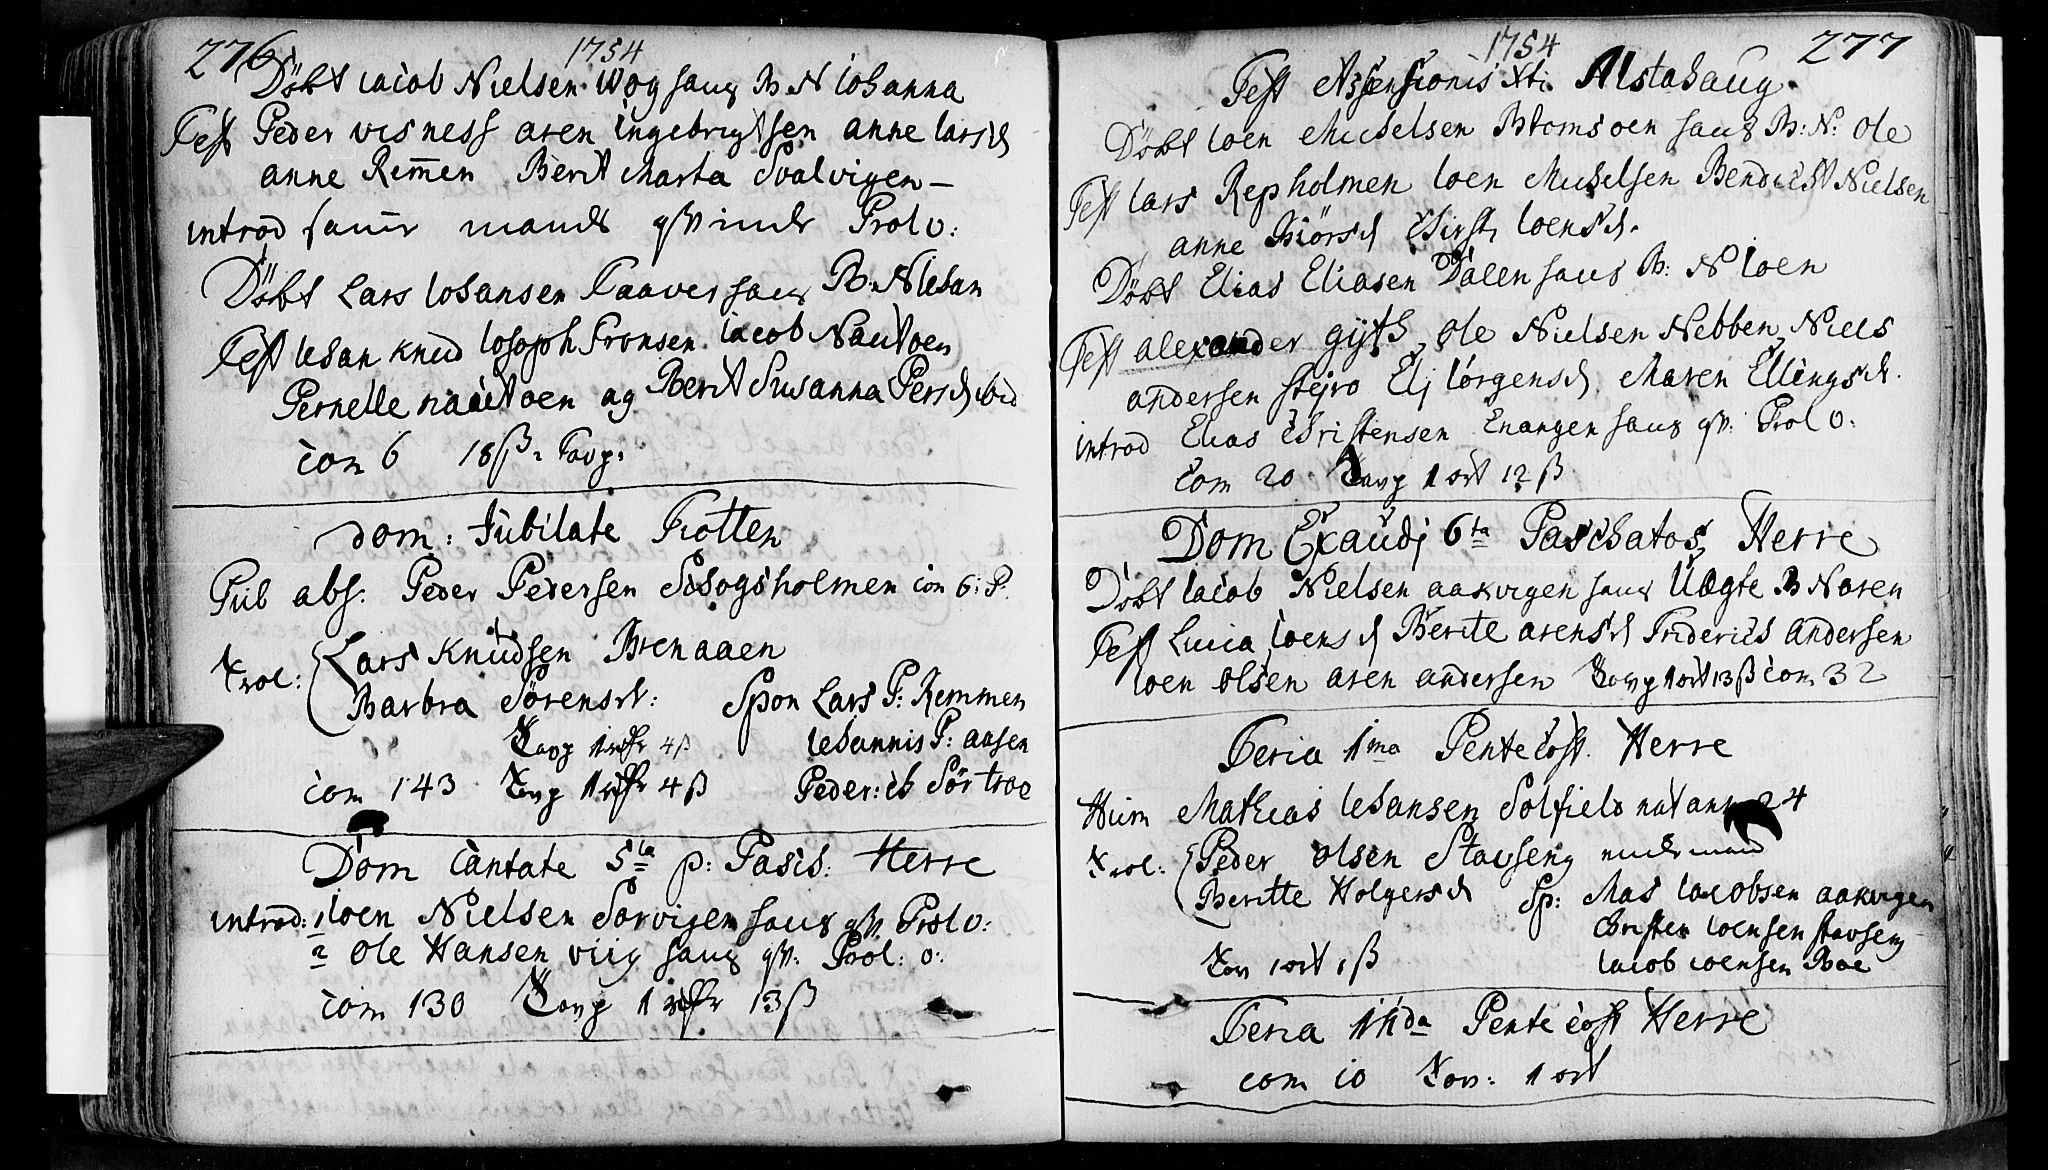 276
1754
Döbt Iacob Nielsen Wog haus B N Iohanna
Test Peder visness aren ingebrigtsen anne larsd
anne Remen Berit Marta Svalvigen
introd samme mands qvinde Prol 0:
Döbt Lars Iohansen Taaver haus B: N Iehan
Test Iehan Knud Ioseph Fronsen Iacob Nautoen
Pernelle nautoen ag Berit Susanna Persd ibid
Com 6 18 ß: Tavp:
Dom: Jubilate Trotten
Pub abs: Peder Pedersen Skogsholmen con 6: P.
Trol: Lars Knudsen Brenaaen
Barbra Sörensd: Spon Lars P: Remmen
Tavp 4 ß Iehannis P: aasen
Com 143 Tavp 4 ß Peder: ib Sörtroe
Dom Cantate 5ta p: Pasc: Herre
introd: 1 Ioen Nielsen Sorvigen haus qv: Prol 0:
2 Ole Hansen viig haus qv: Prol: 0:
Com 130 Tavp 1 13 ß
277
1754
Fest Assensionis Xti Alstahaug
Döbt Ioen Michelsen Blomsoen haus B: N: Ole
Test lars Repholmen Ioen Michelsen Bendict Nielsen
anne Biörsd Chirst Ioensd.
Döbt Elias Eliasen Dalen haus B: N Ioen
Test alexander gyth, Ole Nielsen Nebben, Niels
andersen stejro Elj Iörgensd, Maren Ellingsd.
introd Elias Christensen Enangen haus qv: Prol 0:
Com 20 Tavp 1 ort 12 ß
Dom Exaudj 6ta Paschatos, Herre
Döbt Iacob Nielsen aakvigen haus Uægte B N aren
Test Lucia Ioensd Berite arensd Friderics andersen
Ioen olsen aren andersen Tavp 1 ort 13 ß Com 32
Feria 1ma Pentecost. Herre
Hum Mathias Iehansen Solfield nat ann 24
Trol: Peder olsen Stavseng
Beritte Holgersd Sp: Mas Iacobsen aakvigen
Christen Ioensen stavseng
Tav 1 ort 1 ß Iacob Ioensen Boe
Feria IIda Pentecost Herre
Com 10 Tav: 1 ort